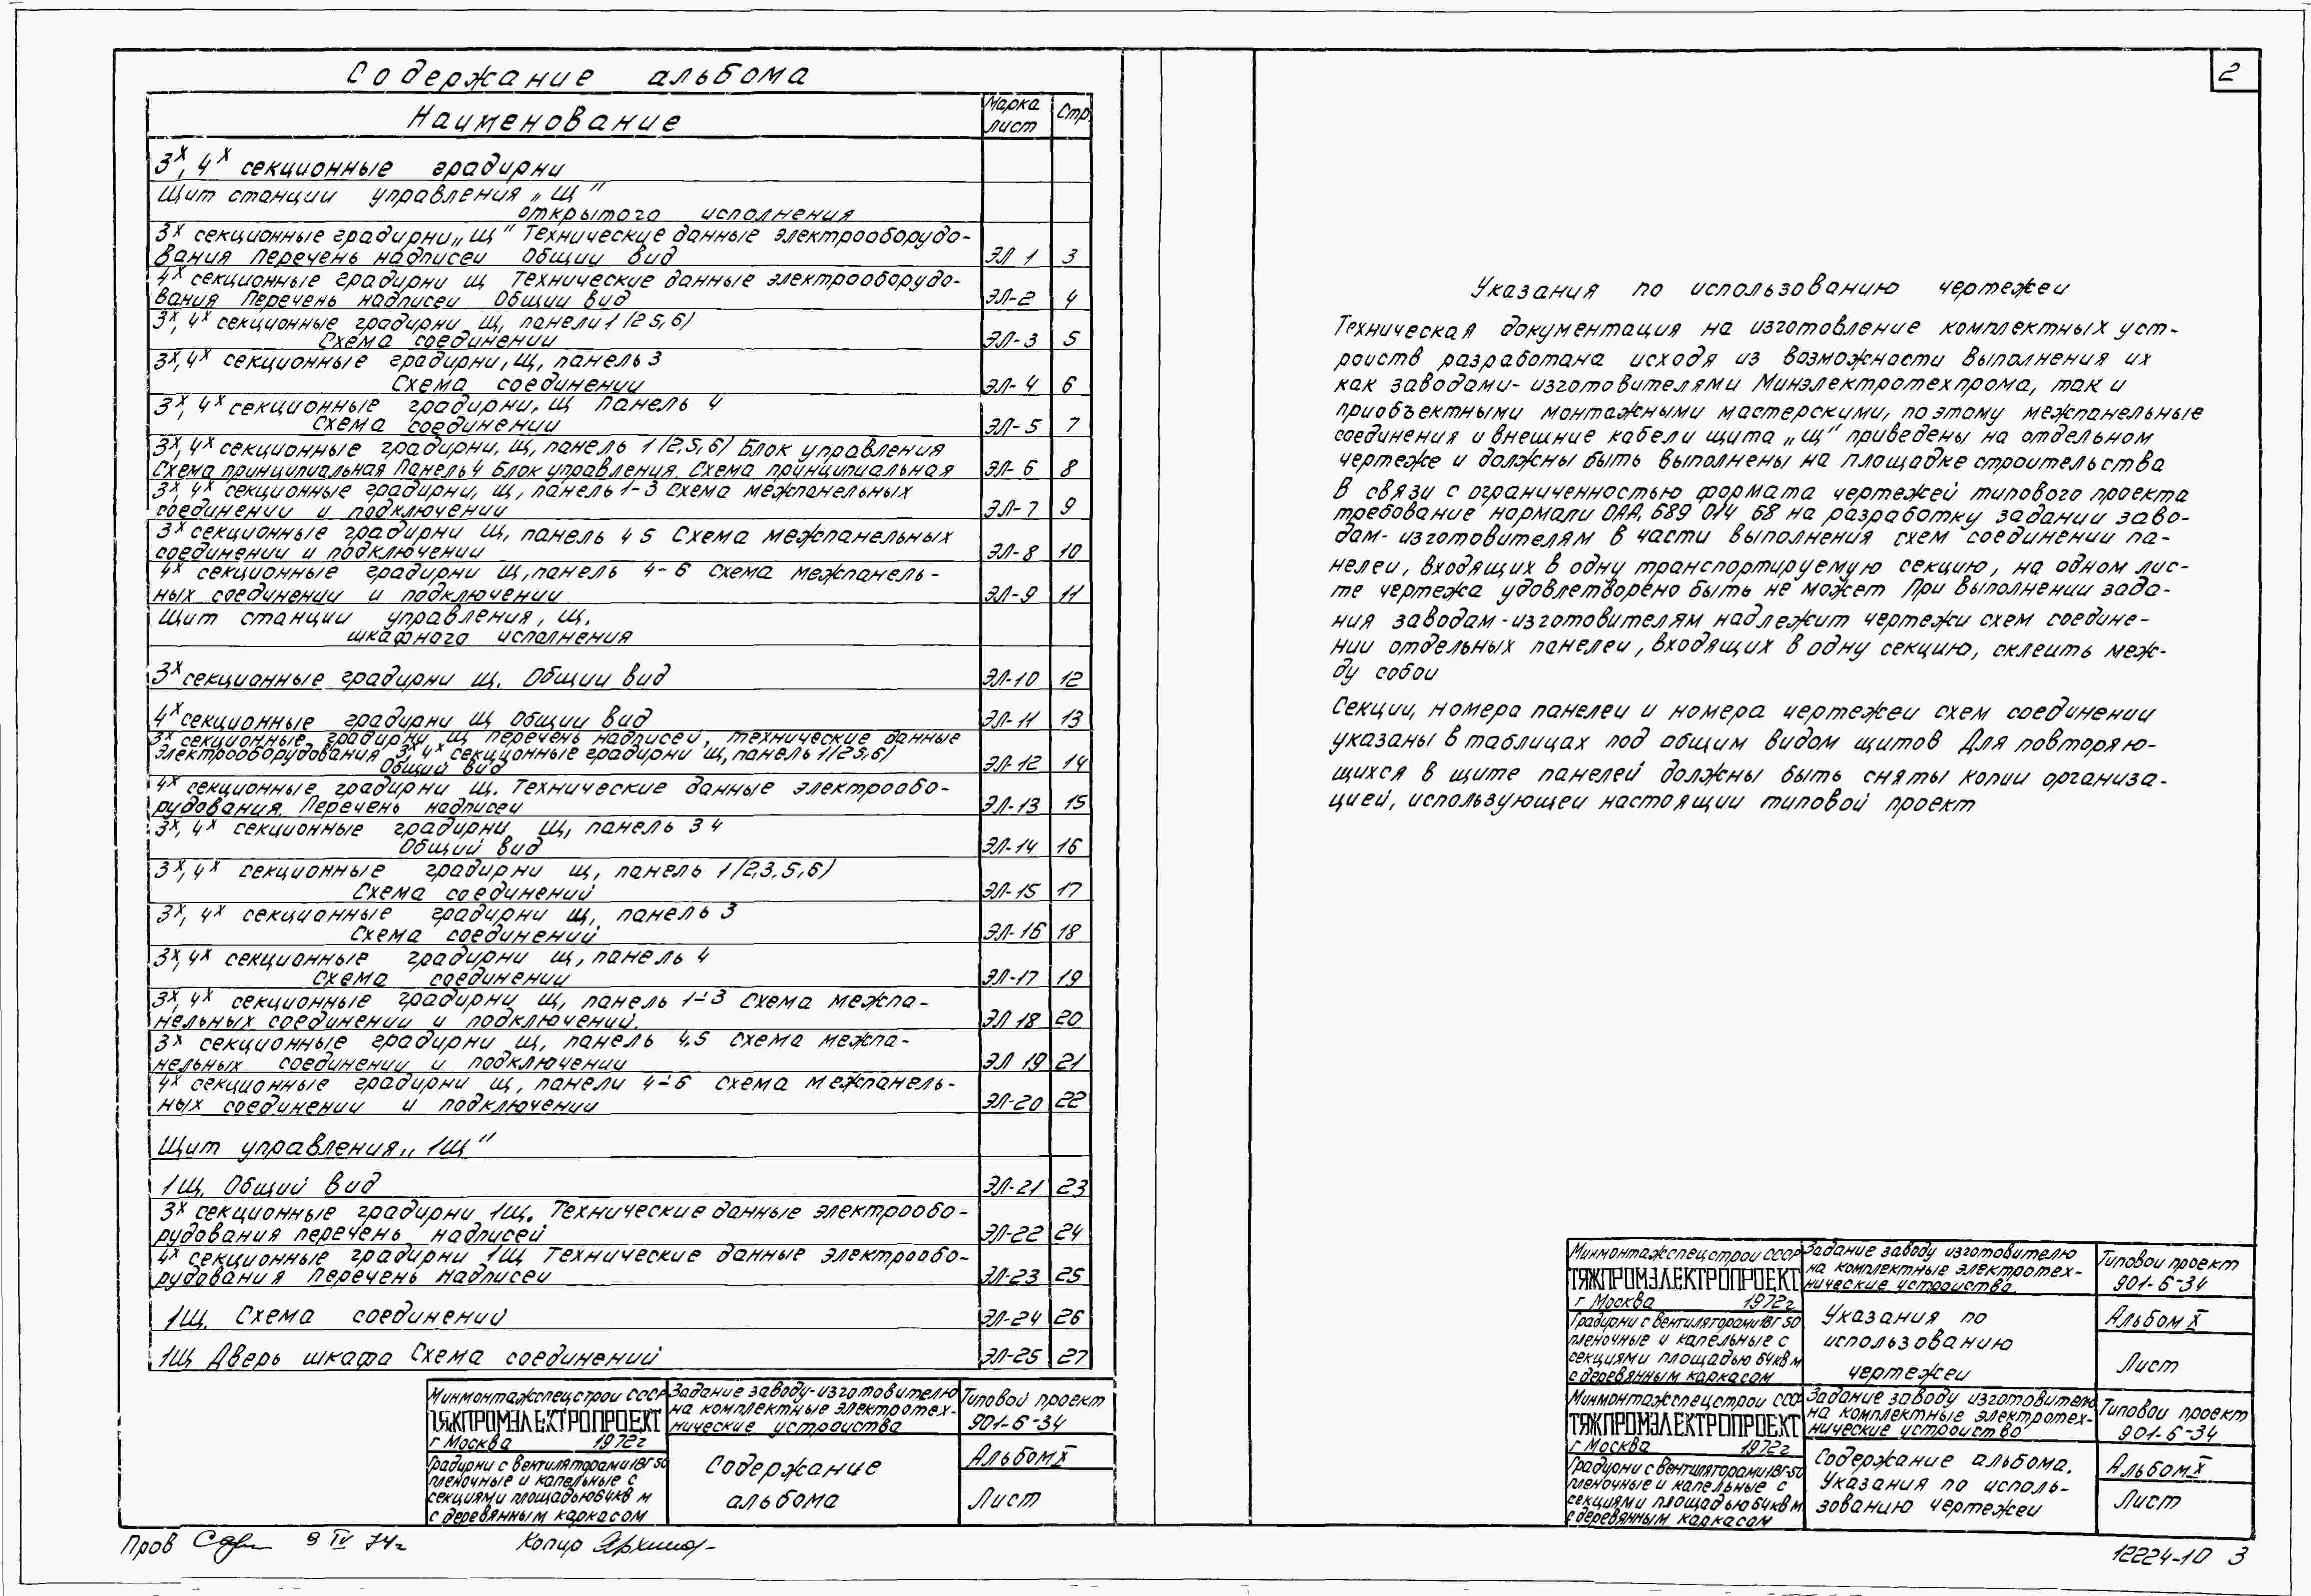 Содержание альбома
Наименование
Марка лист
Стр.
3х, 4х секционные градирни
Щит станции управления „Щ"
открытого исполнения
3х секционные градирни „Щ" Технические данные электрооборудо-
вания Перечень надписеи Общии вид ЭЛ 1 3
4х секционные градирни щ Технические данные электрооборудо-
вания Перечень надписеи Общии вид ЭЛ-2 4
3х, 4х секционные градирни щ, панели 1 (2 5, 6)
Схема соединении ЭЛ-3 5
3х, 4х секционные градирни, щ, панель 3
Схема соединении ЭЛ-4 6
3х, 4х секционные градирни, щ панель 4
Схема соединении ЭЛ-5 7
3х, 4х секционные градирни, щ, панель 1 (2,5,6) Блок управления
Схема принципиальная Панель 4 Блок управления Схема принципиальная ЭЛ-6 8
3х, 4х секционные градирни, щ, панель 1-3 Схема межпанельных
соединении и подключении ЭЛ-7 9
3х секционные градирни щ, панель 4 5 Схема межпанельных
соединении и подключении ЭЛ-8 10
4х секционные градирни щ, панель 4-6 схема межпанель-
ных соединении и подключении ЭЛ-9 11
Щит станции управления, щ.
шкафного исполнения
3х секционные градирни щ. Общии вид ЭЛ-10 12
4х секционные градирни щ общии вид ЭЛ-11 13
3х секционные градирни щ перечень надписей, технические данные
электрооборудования 3х, 4х секционные градирни щ, панель 1 (2 5, 6)
Общий вид ЭЛ-12 14
4х секционные градирни щ. Технические данные электрообо-
рудования. Перечень надписеи ЭЛ-13 15
3х, 4х секционные градирни щ, панель 3 4
Общий вид ЭЛ-14 16
3х, 4х секционные градирни щ, панель 1 (2,3,5,6)
Схема соединений ЭЛ-15 17
3х, 4х секционные градирни щ, панель 3
Схема соединений ЭЛ-16 18
3х, 4х секционные градирни щ, панель 4
схема соединении ЭЛ-17 19
3х, 4х секционные градирни щ, панель 1÷3 Схема межпа-
нельных соединении и подключений. ЭЛ 18 20
3х секционные градирни щ, панель 4,5 схема межпа-
нельных соединении и подключении ЭЛ 19 21
4х секционные градирни щ, панели 4÷6 схема межпанель-
ных соединении и подключении ЭЛ-20 22
Щит управления „1Щ"
1щ. Общий вид ЭЛ-21 23
3х секционные градирни 1щ. Технические данные электрообо-
рудования перечень надписей ЭЛ-22 24
4х секционные градирни 1щ Технические данные электрообо-
рудования перечень надписеи ЭЛ-23 25
1щ. Схема соединений ЭЛ-24 26
1щ Дверь шкафа Схема соединений ЭЛ-25 27
Минмонтажспецстрои СССР
ТЯЖПРОМЭЛЕКТРОПРОЕКТ
г Москва 1972г
Градирни с вентиляторами 1ВГ 50
пленочные и капельные с
секциями площадью 64 кв м
с деревянным каркасом
Задание заводу-изготовителю
на комплектные электротех-
нические устроиства
Содержание
альбома
Типовой проект
901-6-34
Альбом X
Лист
Пров 9 IV 74г Копир
2
Указания по использованию чертежеи
Техническая документация на изготовление комплектных уст-
роиств разработана исходя из возможности выполнения их
как заводами-изготовителями Минэлектротехпрома, так и
приобъектными монтажными мастерскими, поэтому межпанельные
соединения и внешние кабели щита „Щ" приведены на отдельном
чертеже и должны быть выполнены на площадке строительства
В связи с ограниченностью формата чертежей типового проекта
требование нормали ОАА, 689 014 68 на разработку задании заво-
дам-изготовителям в части выполнения схем соединении па-
нелеи, входящих в одну транспортируемую секцию, на одном лис-
те чертежа удовлетворено быть не может При выполнении зада-
ния заводам-изготовителям надлежит чертежи схем соедине-
нии отдельных панелеи, входящих в одну секцию, склеить меж-
ду собои
Секции, номера панелеи и номера чертежеи схем соединении
указаны в таблицах под общим видом щитов Для повторяю-
щихся в щите панелей должны быть сняты копии организа-
цией, использующеи настоящии типовой проект
Минмонтажспецстрои СССР
ТЯЖПРОМЭЛЕКТРОПРОЕКТ
г Москва 1972г
Градирни с вентиляторами 1ВГ 50
пленочные и капельные с
секциями площадью 64 кв м
с деревянным каркасом
Задание заводу изготовителю
на комплектные электротех-
нические устроиства.
Указания по
использованию
чертежеи
Типовои проект
901-6-34
Альбом X
Лист
Минмонтажспецстрои СССР
ТЯЖПРОМЭЛЕКТРОПРОЕКТ
г Москва 1972г
Градирни с вентиляторами 1ВГ-50
пленочные и капельные с
секциями площадью 64 кв м
с деревянным каркасом
Задание заводу изготовителю
на комплектные электротех-
нические устроиство
Содержание альбома.
Указания по исполь-
зованию чертежеи
Типовой проект
901-6-34
Альбом X
Лист
12224-10 3